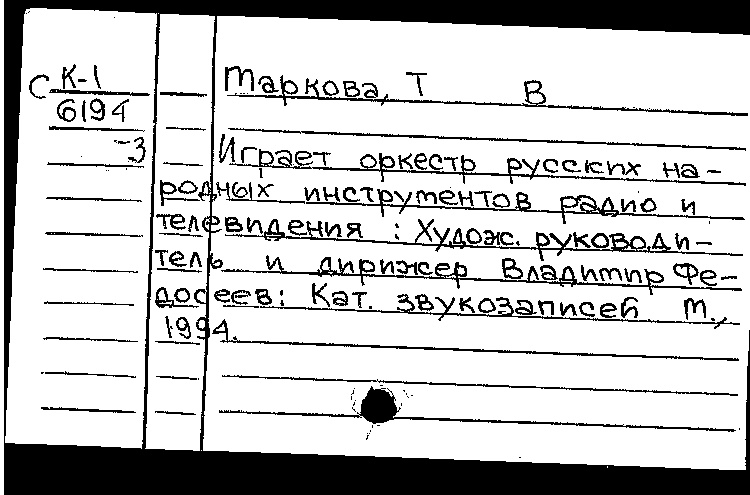 С К-1
6194
-3
Маркова, Т В
Играет оркестр русских на-
родных инструментов радио и
телевидения : Худож. руководи-
тель и дирижер Владимир Фе-
досеев: Кат. звукозаписей М.,
1994.